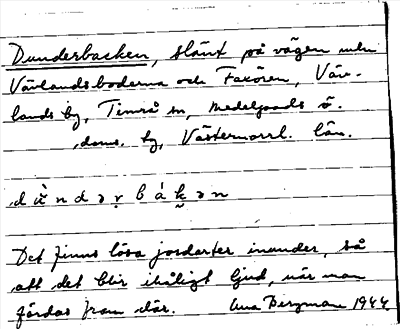 Dunderbacken, slänt på vägen mln
Vävlandsboderna och Faxören, Väv-
lands by, Timrå sn, Medelpads ö.
doms. by, Västernorrl. län.
d ù n d ə r b á k ə n
Det finns lösa jordarter inunder, så
att det blir ihåligt ljud, när man
färdas fram där. Anna Bergman 1944